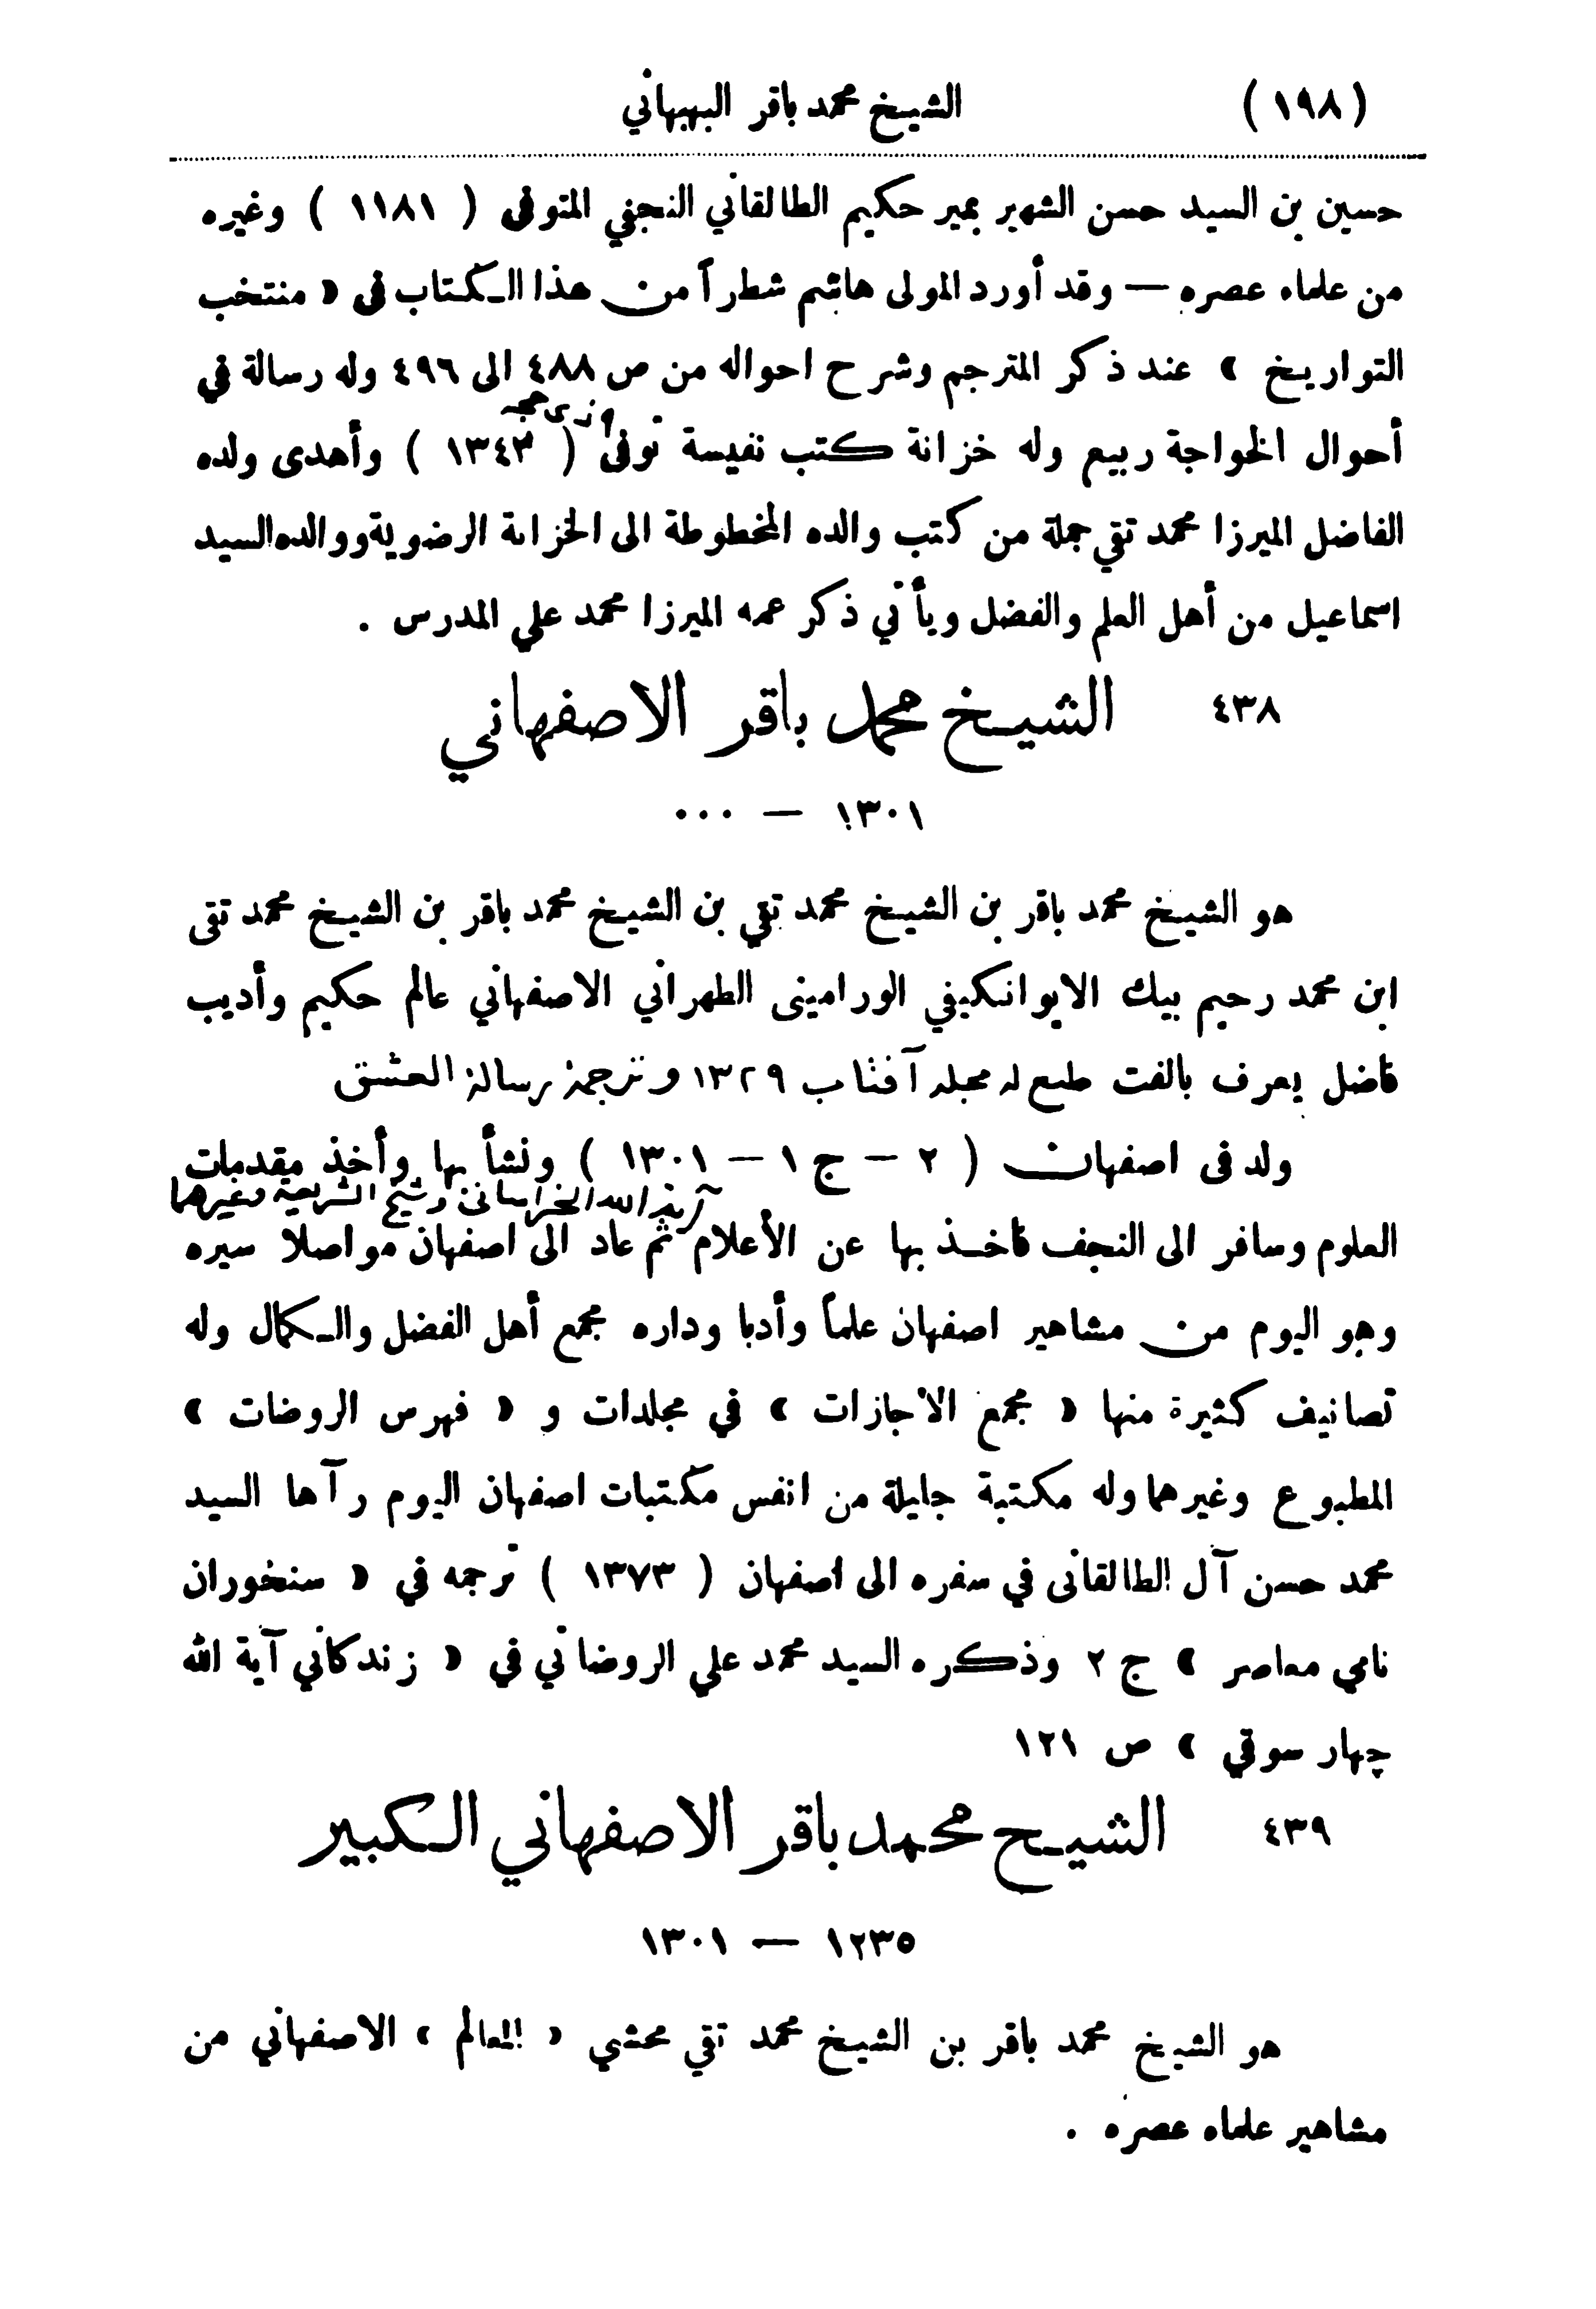 (١٩٨) الشيخ محمد باقر البهبهاني
حسين بن السيد حسن الشهير بمير حكيم الطالقاني النجفي المتوفى ( ١١٨١ ) وغيره
من علماء عصره — وقد أورد المولى هاشم شطراً من هذا الكتاب في « منتخب
التواريخ » عند ذكر المترجم وشرح احواله من ص ٤٨٨ الى ٤٩٦ وله رسالة في
أحوال الخواجة ربيع وله خزانة كتب نفيسة توفى ( ١٣٤٣ ) وأهدى ولده
الفاضل الميرزا محمد تقي جملة من كتب والده المخطوطة الى الخزانة الرضوية ووالده السيد
اسماعيل من أهل العلم والفضل ويأتي ذكر عمه الميرزا محمد علي المدرس .
٤٣٨ الشيخ محمد باقر الاصفهاني
١٣٠١ — ...
هو الشيخ محمد باقر بن الشيخ محمد تقي بن الشيخ محمد باقر بن الشيخ محمد تقى
ابن محمد رحيم بيك الايوانكيفي الورامينى الطهراني الاصفهاني عالم حكيم وأديب
فاضل يعرف بالفت طبع له مجله آفتاب ١٣٢٩ و ترجمة رسالة العشق
ولد فى اصفهان ( ٢ — ج ١ — ١٣٠١ ) ونشأ بها وأخذ مقدمات
آية الله الخراساني وشيخ الشريعة وغيرهما
العلوم وسافر الى النجف فاخذ بها عن الأعلام ثم عاد الى اصفهان مواصلا سيره
وهو اليوم من مشاهير اصفهان علماً وأدبا وداره مجمع أهل الفضل والكمال وله
تصانيف كثيرة منها « مجمع الاجازات » في مجلدات و « فهرس الروضات »
المطبوع وغيرهما وله مكتبة جليلة من انفس مكتبات اصفهان اليوم رآها السيد
محمد حسن آل الطالقانى في سفره الى اصفهان ( ١٣٧٣ ) ترجمه في « سنخوران
نامي معاصر » ج ٢ وذكره السيد محمد علي الروضاتي في « زندكاني آية الله
چهار سوقي » ص ١٢١
٤٣٩ الشيخ محمد باقر الاصفهاني الكبير
١٢٣٥ — ١٣٠١
هو الشيخ محمد باقر بن الشيخ محمد تقي محشي « المعالم » الاصفهاني من
مشاهير علماء عصره .